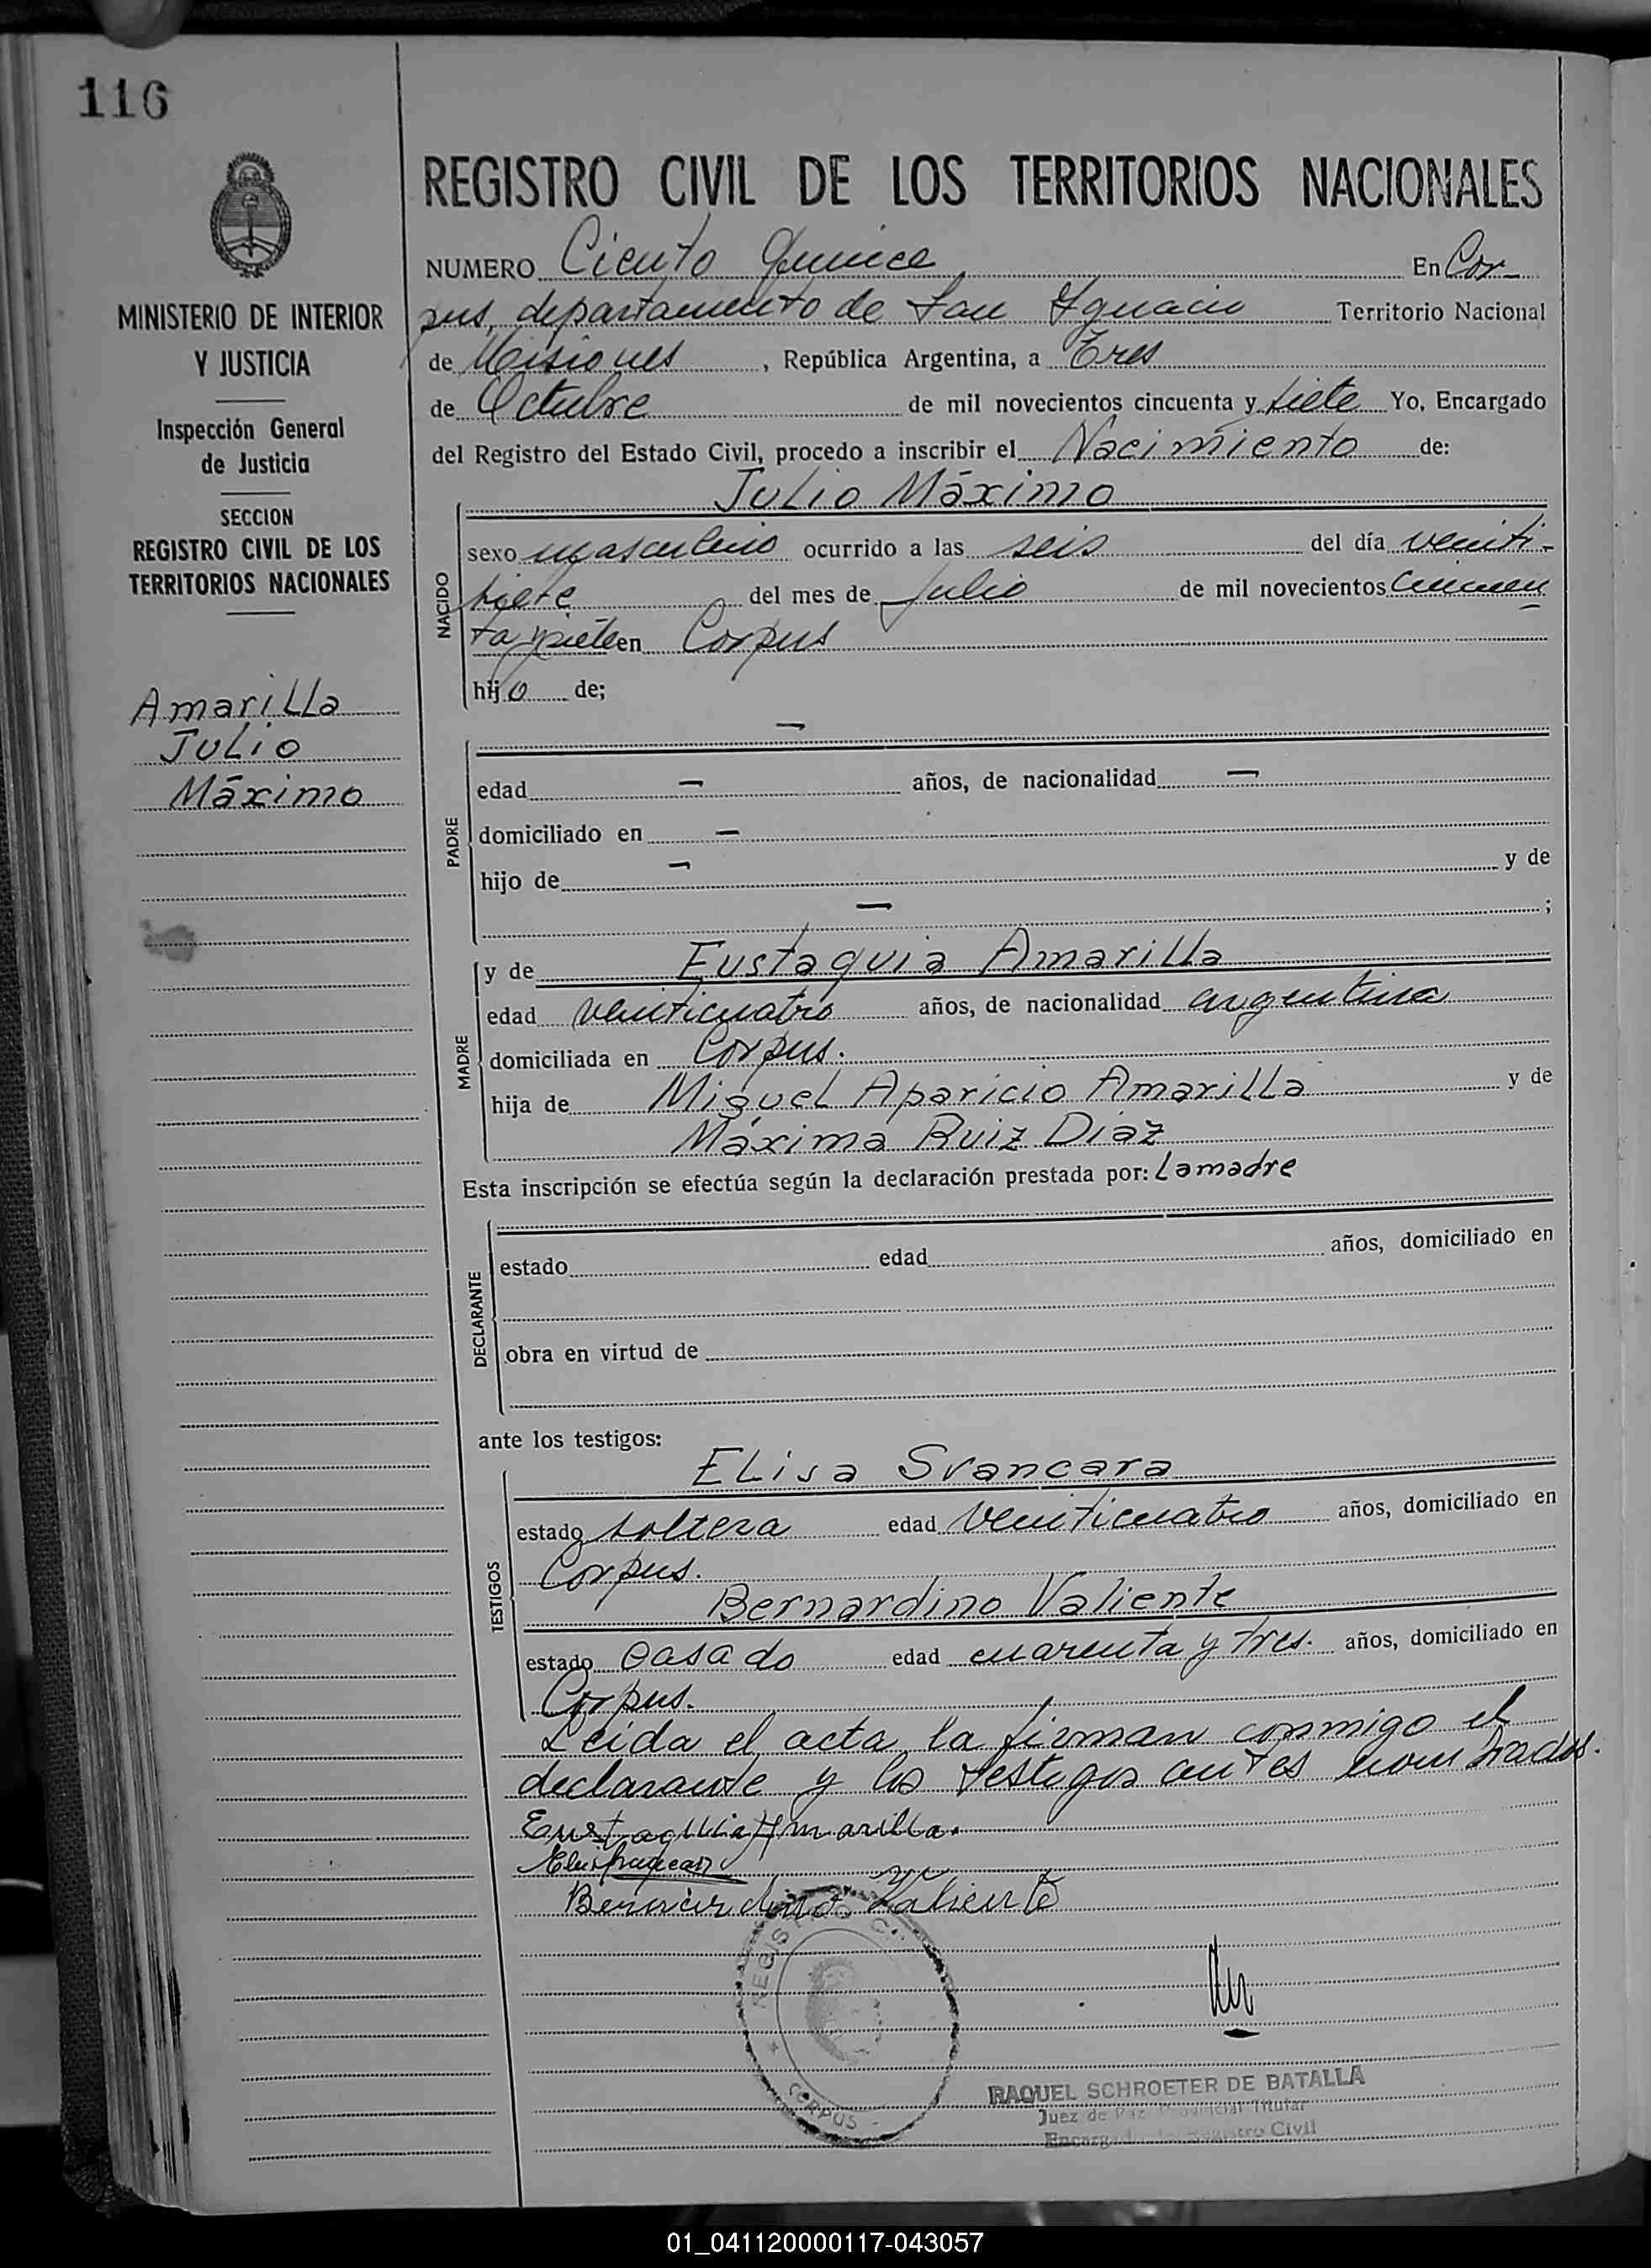 116
REGISTRO CIVIL DE LOS TERRITORIOS NACIONALES
MINISTERIO DE INTERIOR
Y JUSTICIA
Inspección General
de Justicia
SECCION
REGISTRO CIVIL DE LOS
TERRITORIOS NACIONALES
Amarilla
Julio
Máximo
NUMERO Ciento Quince En Cor-
pus, departamento de San Ignacio Territorio Nacional
de Misiones, República Argentina, a Tres
de Octubre de mil novecientos cincuenta y siete Yo, Encargado
del Registro del Estado Civil, procedo a inscribir el Nacimiento de:
Julio Máximo
NACIDO
sexo masculino ocurrido a las seis del día veinti-
siete del mes de Julio de mil novecientos cincuen
ta y siete en Corpus
hijo de;
PADRE
—
edad — años, de nacionalidad —
domiciliado en —
hijo de — y de
— ;
MADRE
y de Eustaquia Amarilla
edad veinticuatro años, de nacionalidad argentina
domiciliada en Corpus.
hija de Miguel Aparicio Amarilla y de
Máxima Ruiz Diaz
Esta inscripción se efectúa según la declaración prestada por: La madre
DECLARANTE
estado edad años, domiciliado en
obra en virtud de
ante los testigos:
TESTIGOS
Elisa Svancara
estado soltera edad veinticuatro años, domiciliado en
Corpus.
Bernardino Valiente
estado casado edad cuarenta y tres. años, domiciliado en
Corpus.
Leida el acta la firman conmigo el
declarante y los testigos antes nombrados.
Eustaquia Amarilla.
Bernardino Valiente
REGISTRO CI
CORPUS
RAQUEL SCHROETER DE BATALLA
Juez de Paz Provincial Titular
Encargada del Registro Civil
01_041120000117-043057